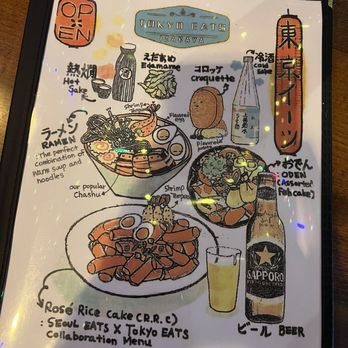 OPEN
TOKYO EATS
IZAKAYA
東京イーツ
熱燗
Hot Sake
えだまめ
Edamame
コロッケ
croquette
冷酒
cold
sake
Shrimp
ラーメン
RAMEN
:The perfect
combination of
warm soup and
noodles
our popular
Chashu
Shrimp
おでん
ODEN
(Assorted
Fish cake)
SAPPORO
Rosé Rice Cake (R.R.C)
: SEOUL EATS X TOKYO EATS
Collaboration Menu
ビール BEER